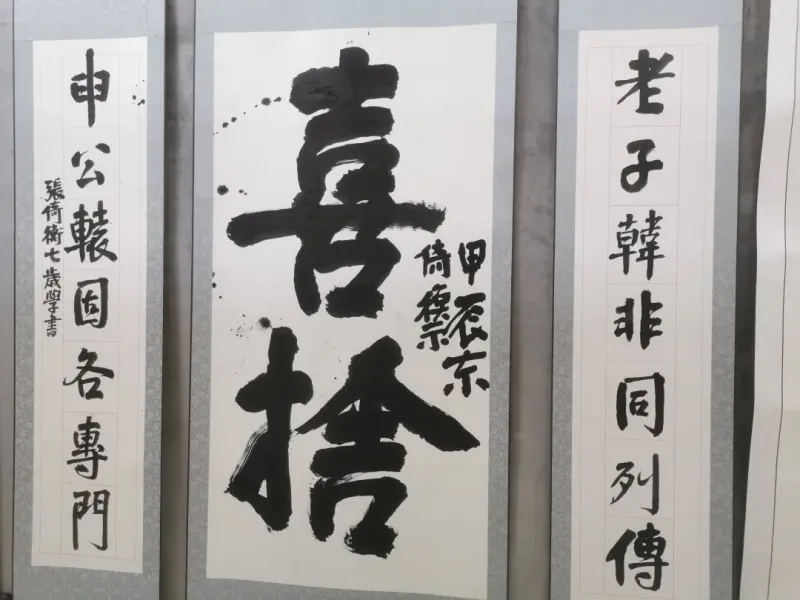 老子韓非同列傳
喜捨
甲辰
倚
申公轅固各專門
張倚衛七歲學書